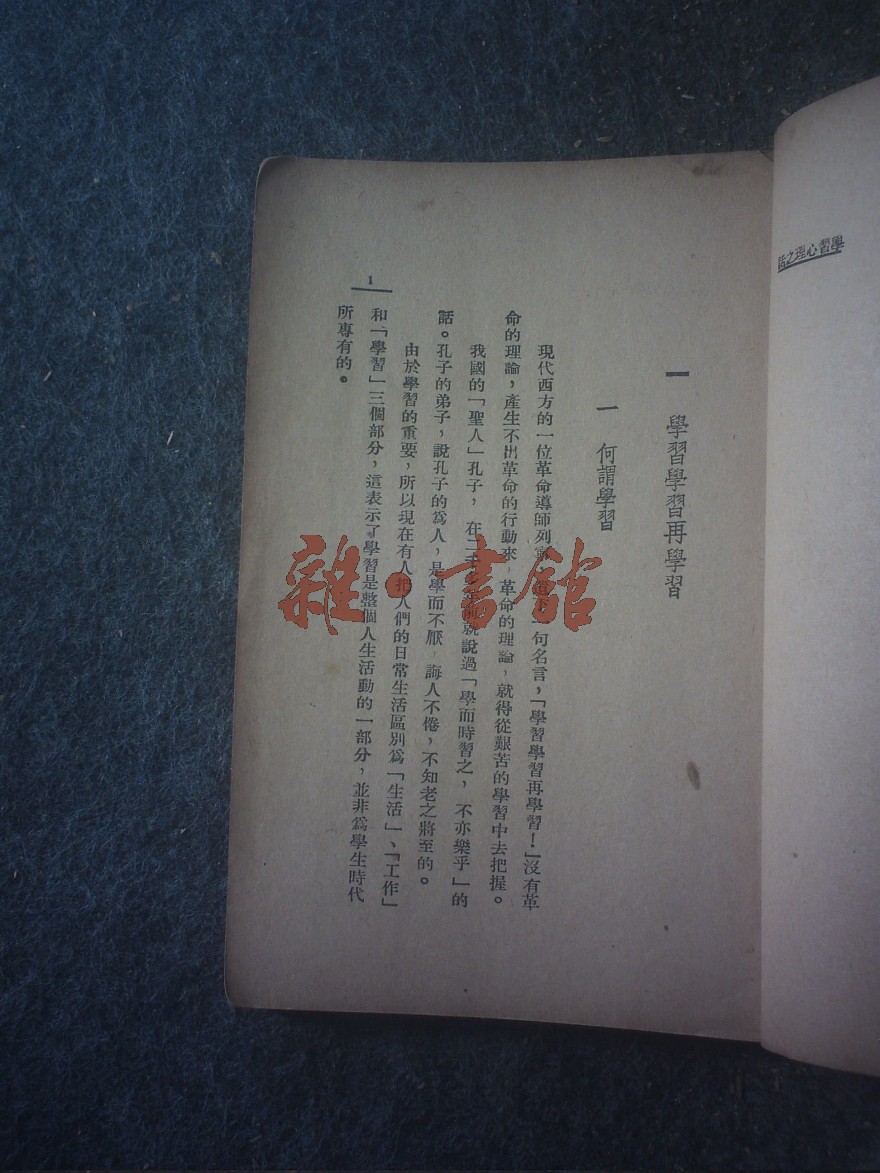 學習心理之話
一 學習學習再學習
一 何謂學習
現代西方的一位革命導師列 句名言,「學習學習再學習!」沒有革
命的理論,產生不出革命的行動來,革命的理論,就得從艱苦的學習中去把握。
我國的「聖人」孔子,在二 就說過「學而時習之,不亦樂乎」的
話。孔子的弟子,說孔子的爲人,是學而不厭,誨人不倦,不知老之將至的。
由於學習的重要,所以現在有人把人們的日常生活區別爲「生活」、「工作」
和「學習」三個部分,這表示了學習是整個人生活動的一部分,並非爲學生時代
所專有的。
1
雜·書館